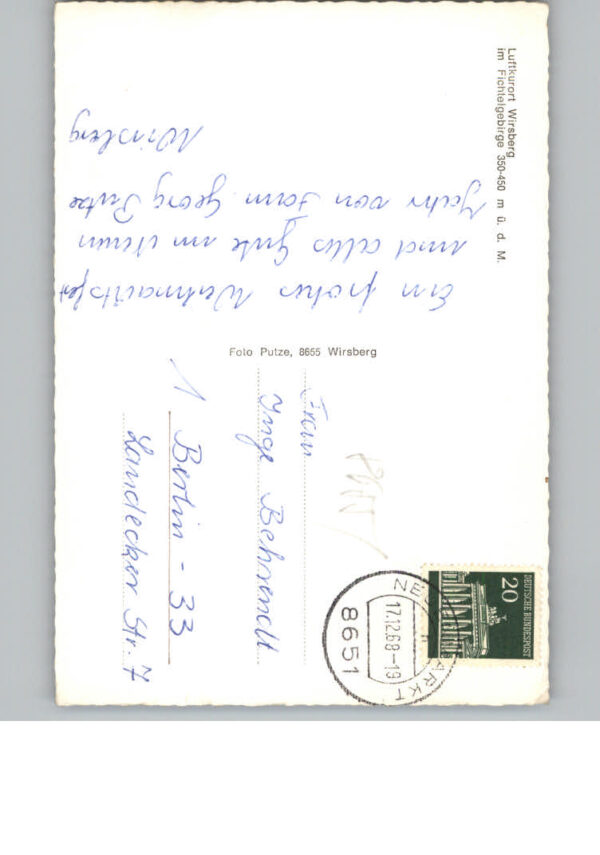 Luftkurort Wirsberg
im Fichtelgebirge 350-450 m ü. d. M.
Ein frohes Weihnachtsfest
und alles Gute im Neuen
Jahr von Fam. Georg Putze
Wirsberg
Foto Putze, 8655 Wirsberg
Frau
Inge Behrendt
1 Berlin - 33
Landecker Str. 7
20
DEUTSCHE BUNDESPOST
17.12.68-19
8651